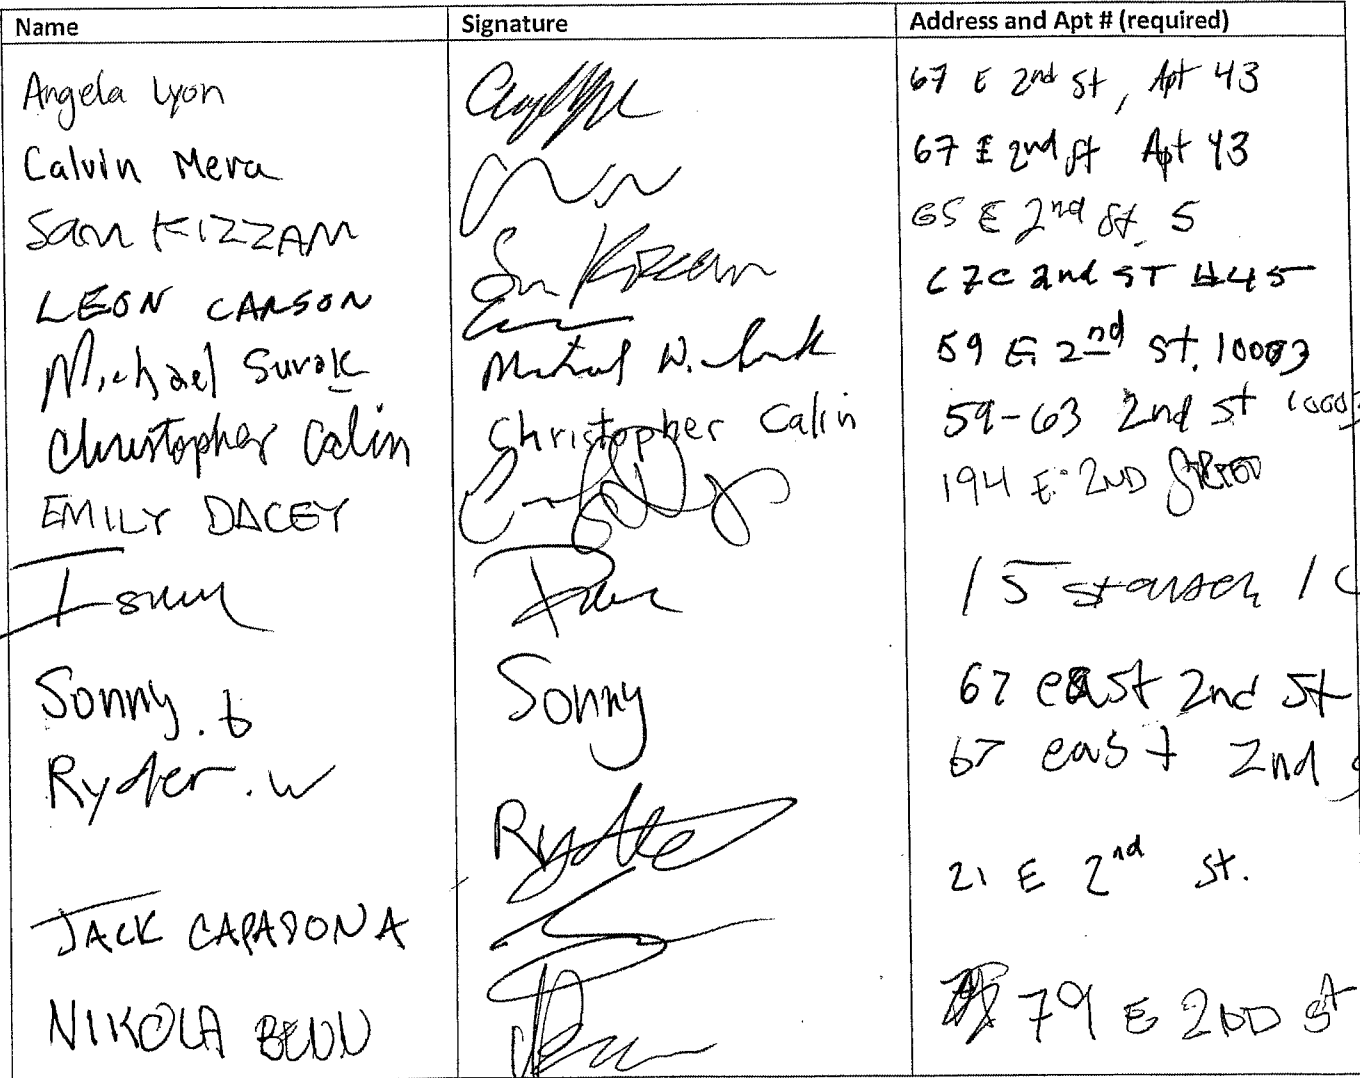 Name Signature Address and Apt # (required)
Angela Lyon 67 E 2nd St, Apt 43
Calvin Mera 67 E 2nd St Apt 43
Sam KIZZAM Sam Kizzam 65 E 2nd St. 5
LEON CARSON 67 E 2nd ST #45
Michael Surak 59 E 2nd St. 10003
Christopher Calin Christopher Calin 59-63 2nd St 10003
EMILY DACEY 194 E. 2ND STREET
15
Sonny.b Sonny 67 east 2nd St
Ryder.w Ryder 67 east 2nd
JACK CAPADONA 21 E 2nd St.
NIKOLA 79 E 2ND St